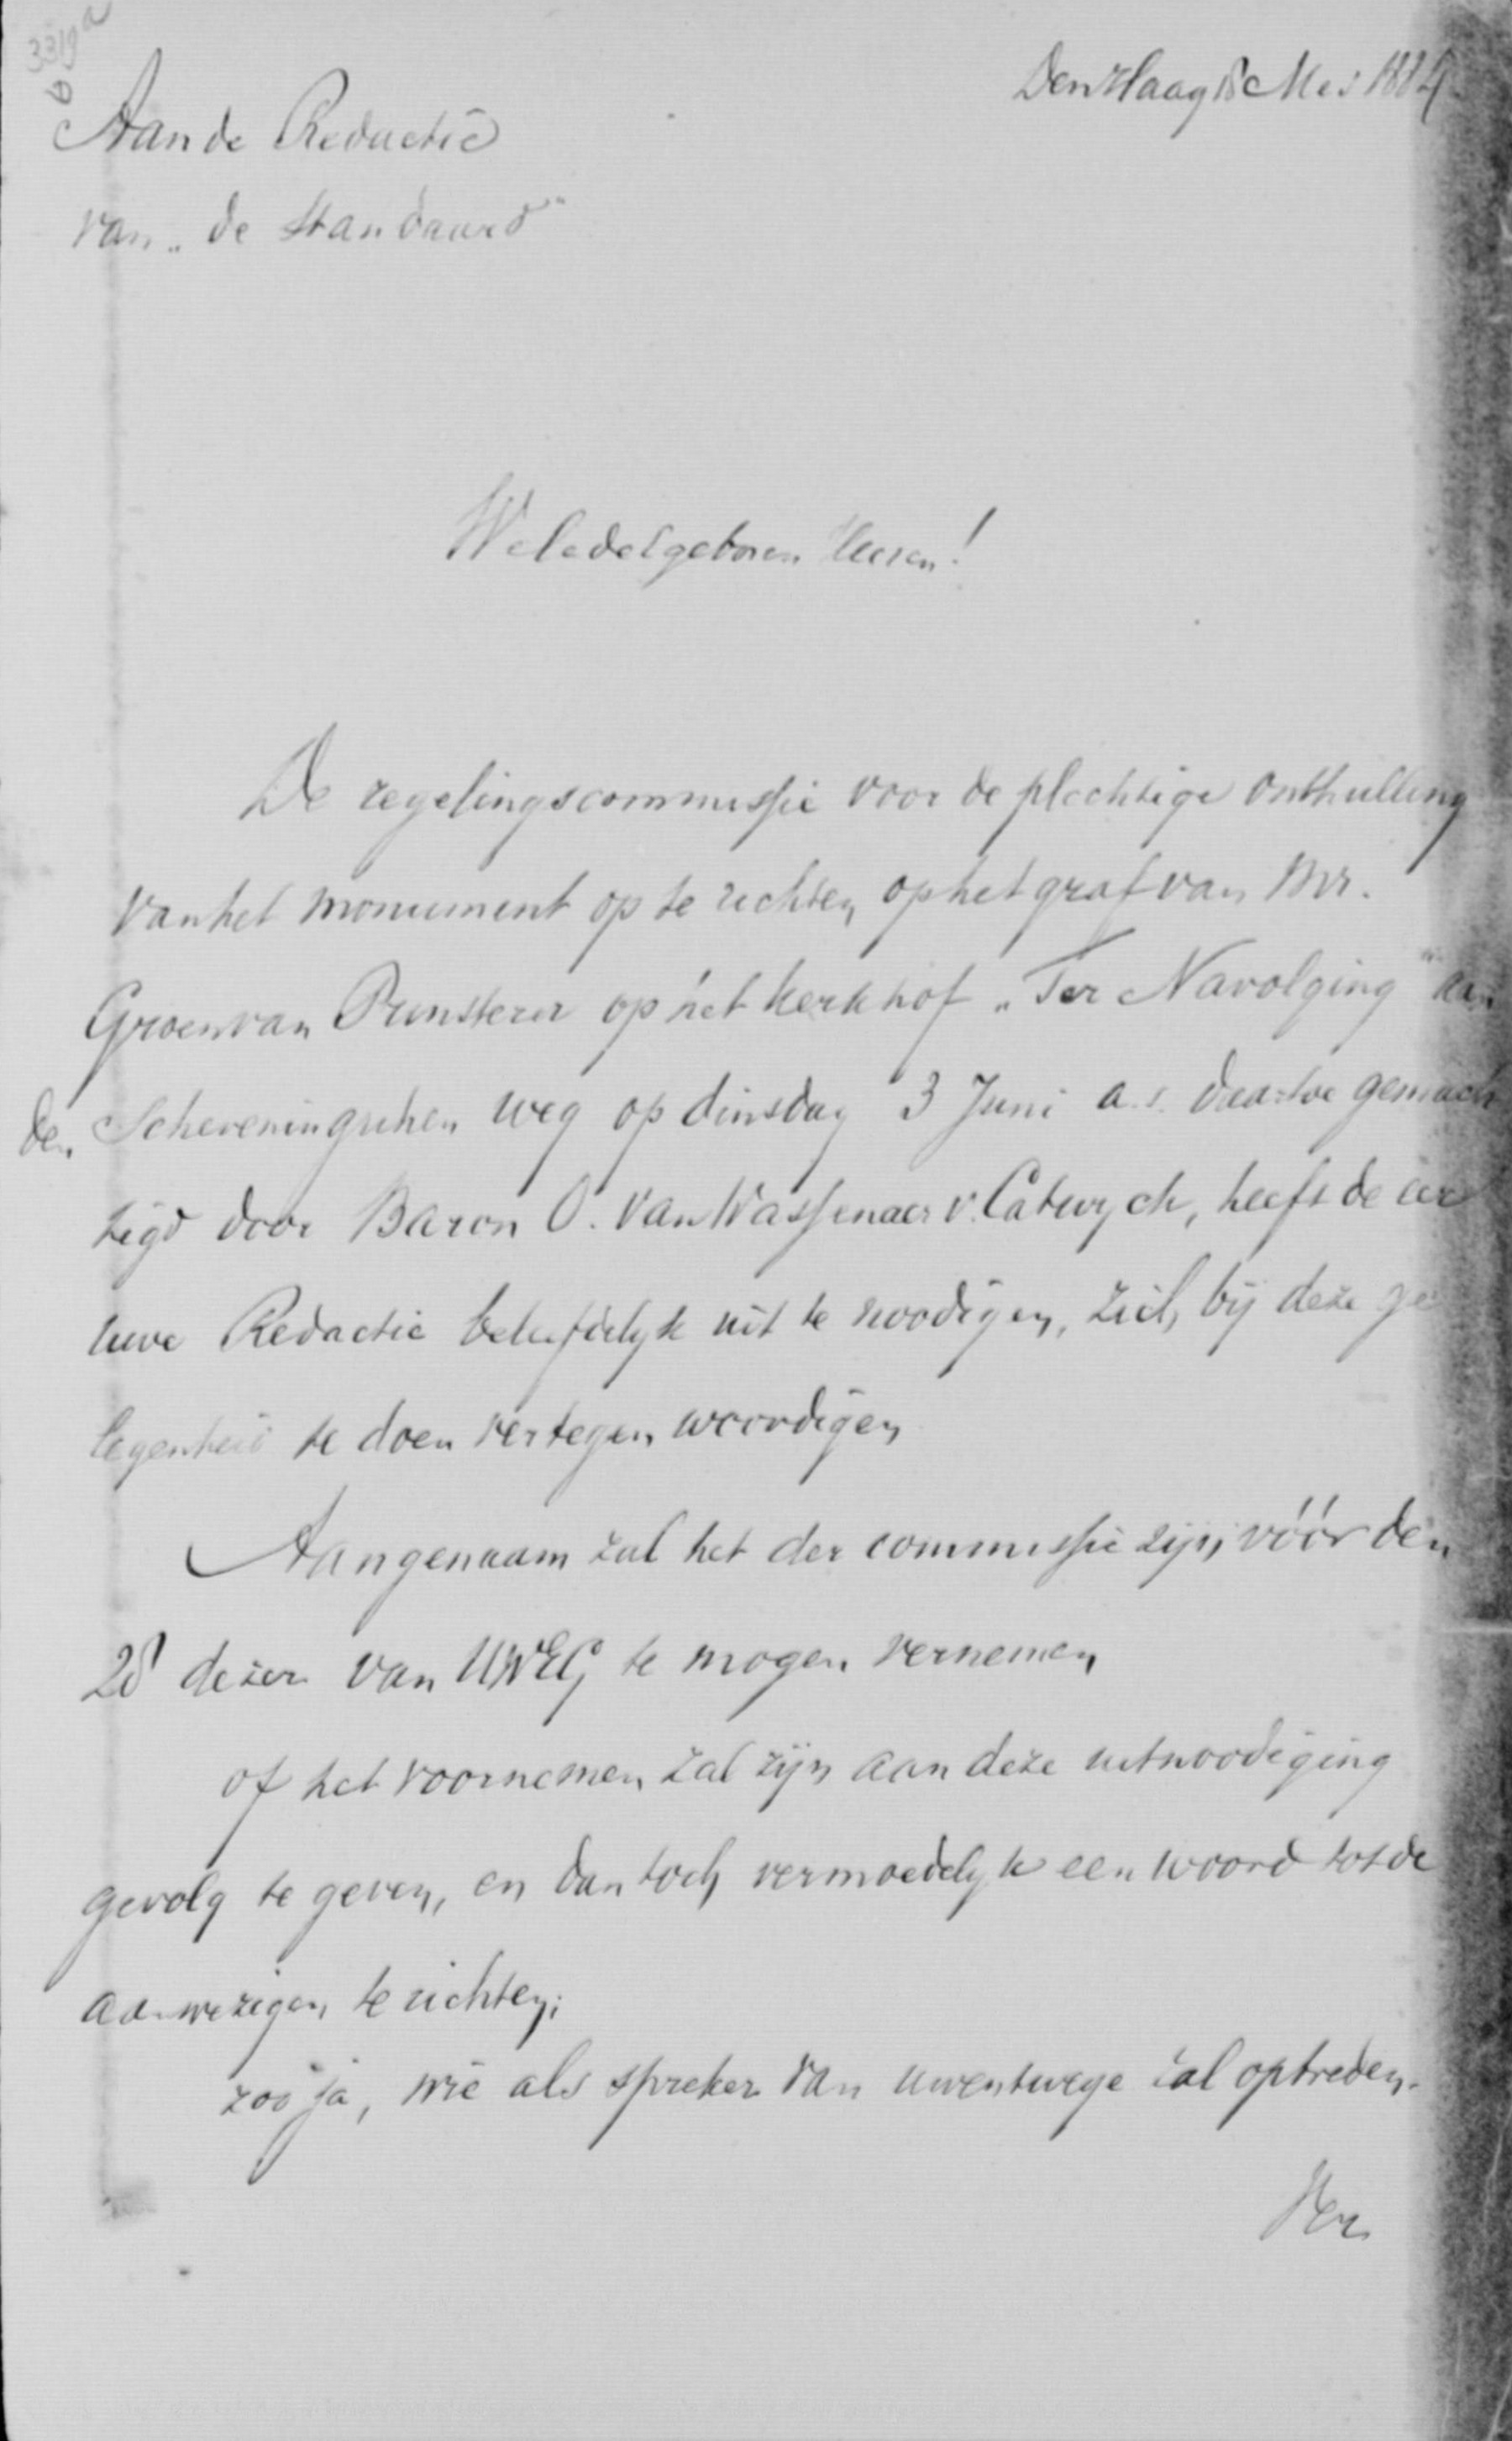 3319a
Den Haag 18 Mei 1884
Aan de Redactie
van „de Standaard"
Weledelgeboren Heeren!
De regelingscommissie voor de plechtige onthulling
van het monument op te richten op het graf van Mr.
Groen van Prinsterer op het kerkhof „Ter Navolging" aan
den Scheveningschen weg op dinsdag 3 Juni a.s. daartoe gemach
tigd door Baron O. van Wassenaer v. Catwyck, heeft de eer
uwe Redactie beleefdelyk uit te noodigen, zich bij deze ge
legenheid te doen vertegenwoordigen
Aangenaam zal het der commissie zijn, vóór den
28 dezer van UWEG te mogen vernemen
of het voornemen zal zijn aan deze uitnoodiging
gevolg te geven, en dan toch vermoedelyk een woord tot de
aanwezigen te richten;
zoo ja, wie als spreker van uwentwege zal optreden.